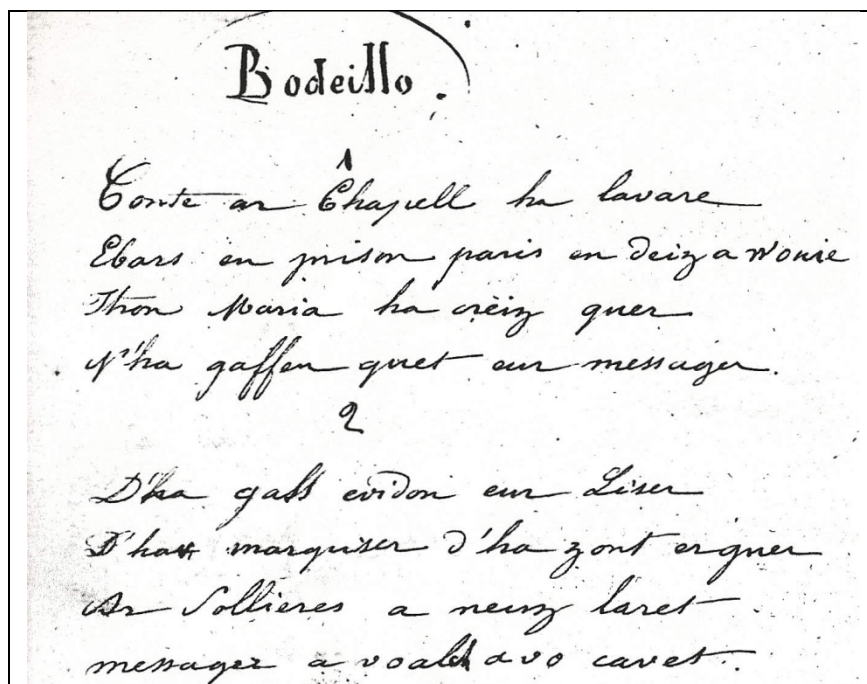 Bodeillo.
1
Conte ar Chapell ha lavare
Ebars en prison paris en deiz a vouie
Ihron Maria ha créiz quer
N'ha gaffen quet eur messager.
2
D'ha gass evidon eur Liser
D'ha marquiser d'ha zont er guer
Ar Sollieres a neuz laret
messager a voalh a vo cavet.